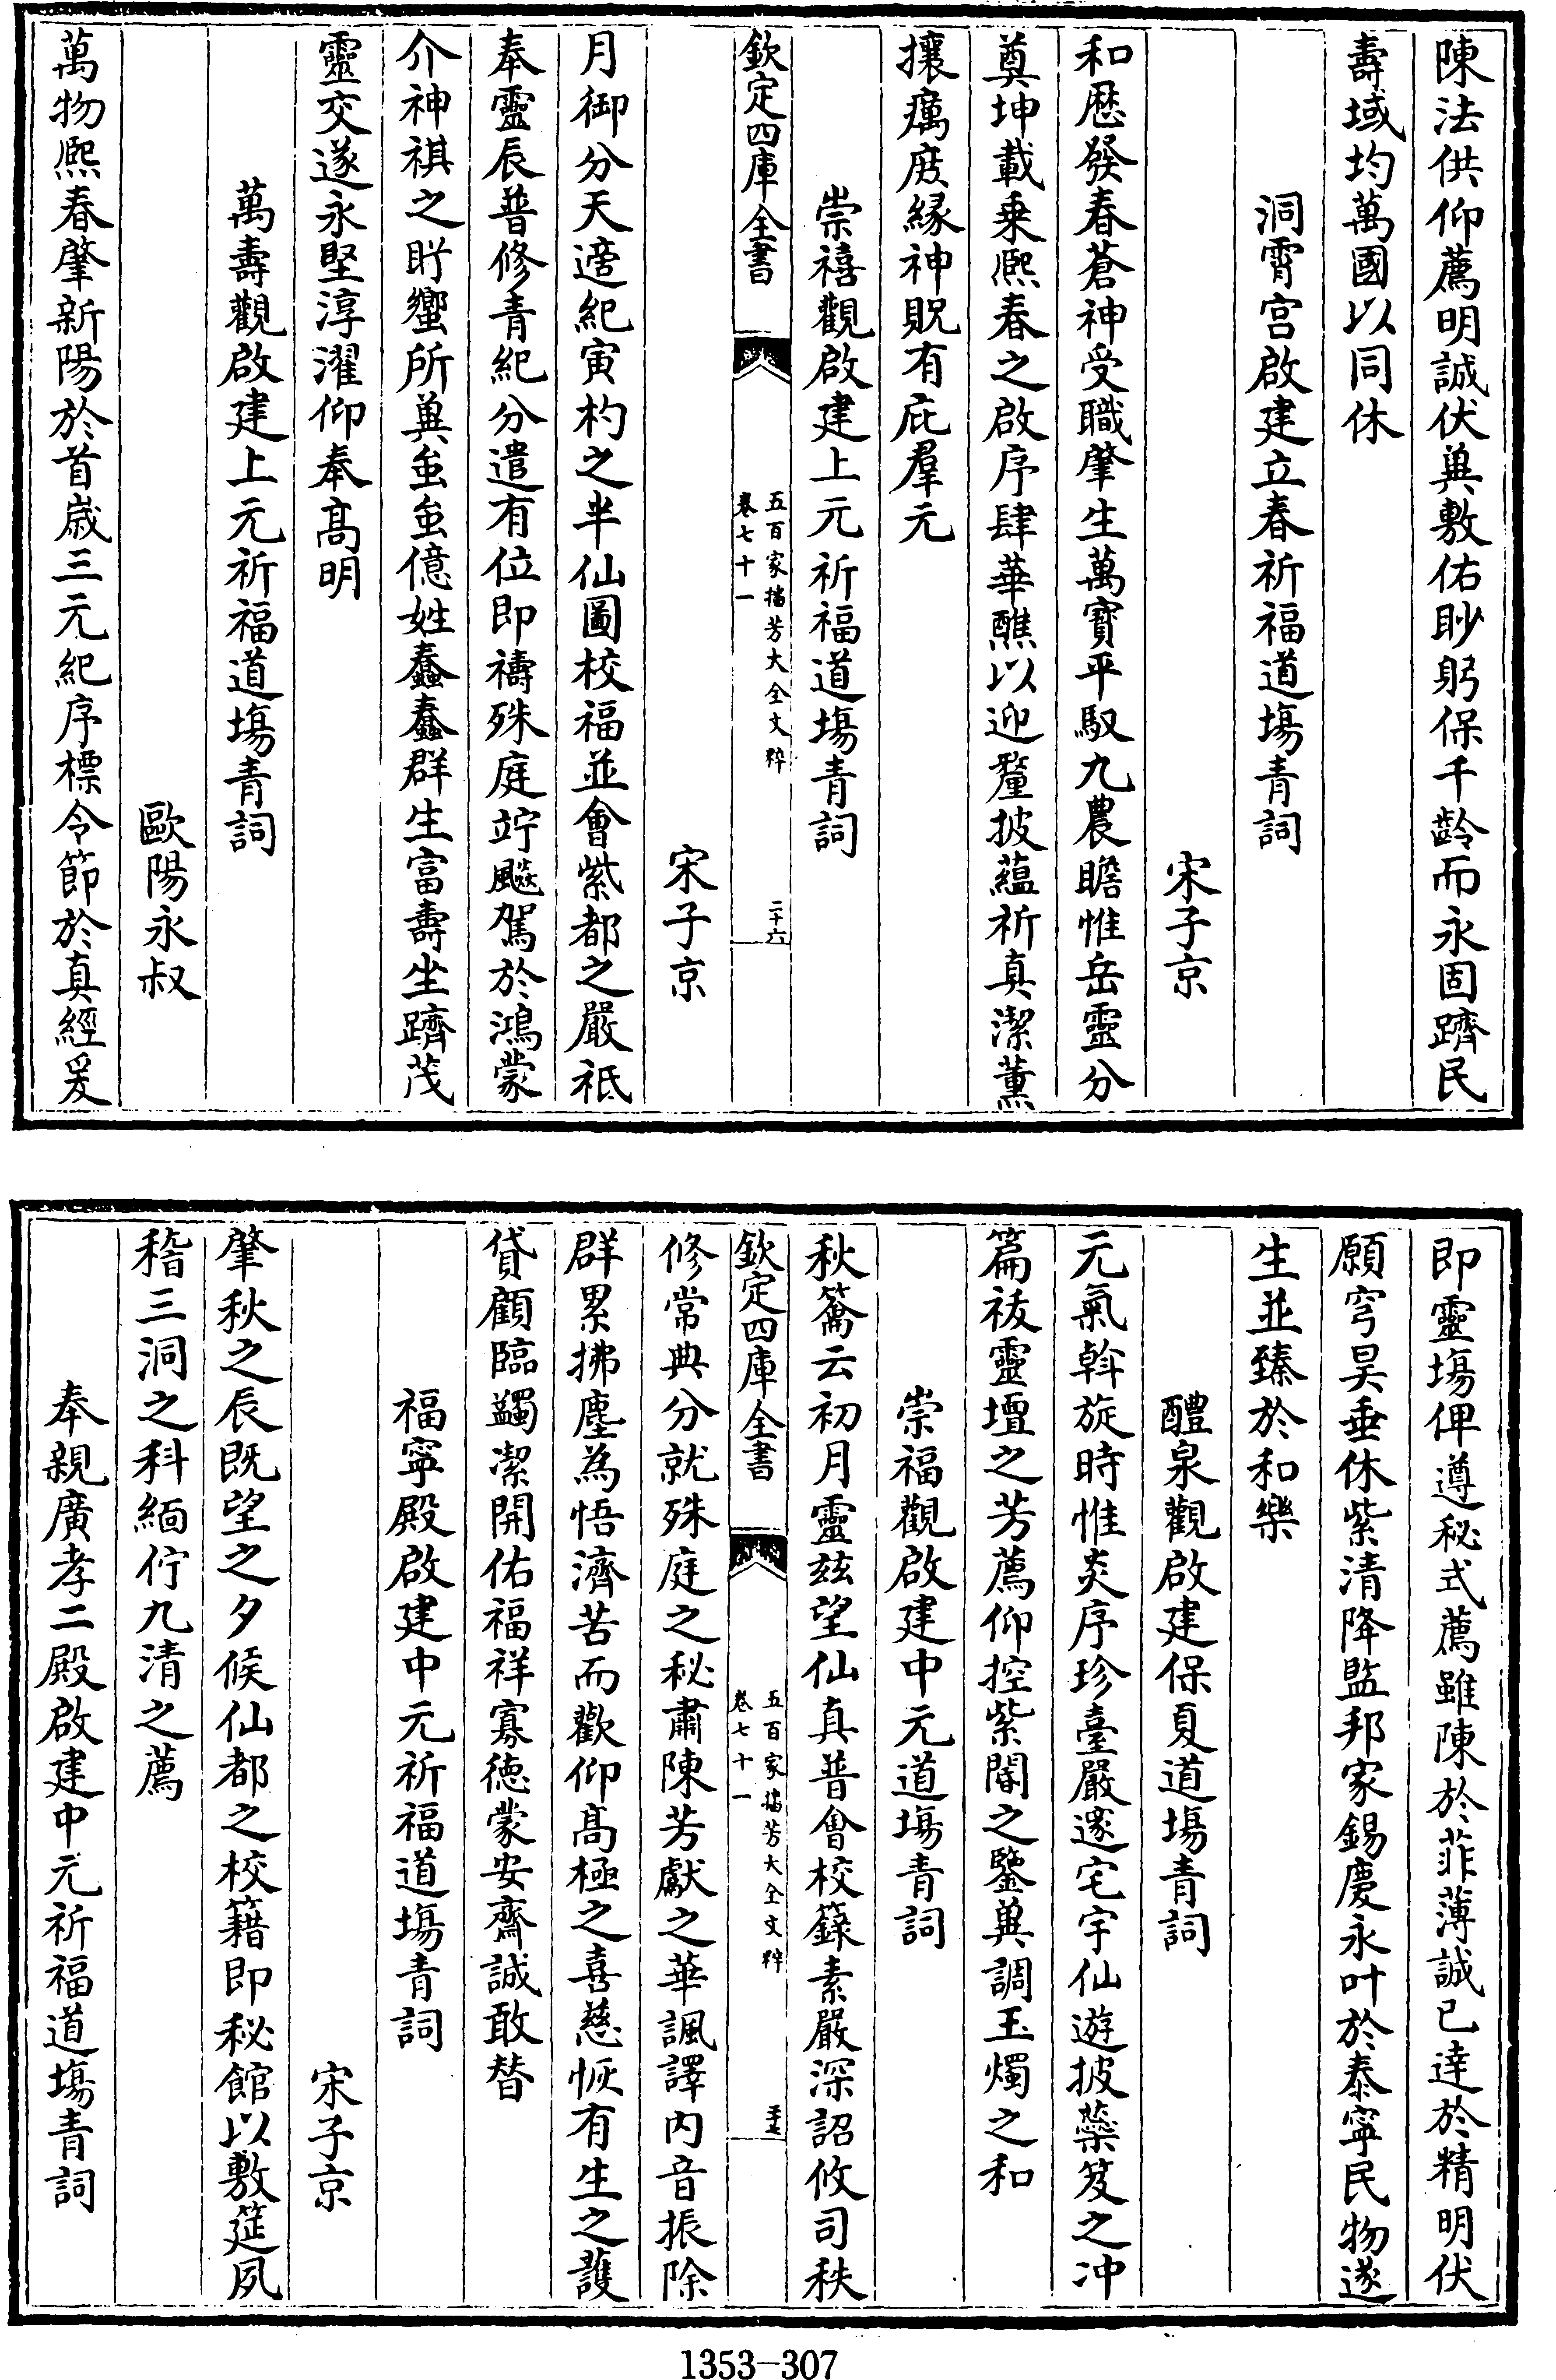 陳法供仰薦明誠伏兾敷佑眇躬保千齡而永固躋民
壽域均萬國以同休
洞霄宫啟建立春祈福道塲青詞
宋子京
和厯發春蒼神受職肇生萬寳平馭九農瞻惟岳靈分
奠坤載乗熈春之啟序肆華醮以迎釐披藴祈真潔薫
攘癘庻縁神貺有庇羣元
崇禧觀啟建上元祈福道塲青詞
欽定四庫全書
五百家播芳大全文粹
卷七十一
二十六
宋子京
月御分天適紀寅杓之半仙圖校福並會紫都之嚴祗
奉靈辰普修青紀分遣有位即禱殊庭竚飈駕於鴻蒙
介神祺之盻蠁所兾䖝䖝億姓蠢蠢群生富壽坐躋茂
靈交遂永堅淳濯仰奉髙明
萬壽觀啟建上元祈福道塲青詞
歐陽永叔
萬物熈春肇新陽於首嵗三元紀序標令節於真經爰
即靈塲俾遵秘式薦雖陳於菲薄誠已達於精明伏
願穹昊垂休紫清降監邦家錫慶永叶於泰寧民物遂
生並臻於和樂
醴泉觀啟建保夏道塲青詞
元氣斡旋時惟炎序珍臺嚴邃宅宇仙遊披蘂笈之冲
篇袚靈壇之芳薦仰控紫閽之鑒兾調玉燭之和
崇福觀啟建中元道塲青詞
秋籥云初月靈兹望仙真普會校籙素嚴深詔攸司秩
欽定四庫全書
五百家播芳大全文粹
卷七十一
二十七
修常典分就殊庭之秘肅陳芳獻之華諷譯内音振除
群累拂塵為悟濟苦而歡仰髙極之喜慈恢有生之䕶
貸顧臨蠲潔開佑福祥寡徳蒙安齋誠敢替
福寧殿啟建中元祈福道塲青詞
宋子京
肇秋之辰既望之夕候仙都之校籍即秘館以敷筵夙
稽三洞之科緬佇九清之薦
奉親廣孝二殿啟建中元祈福道塲青詞
1353-307